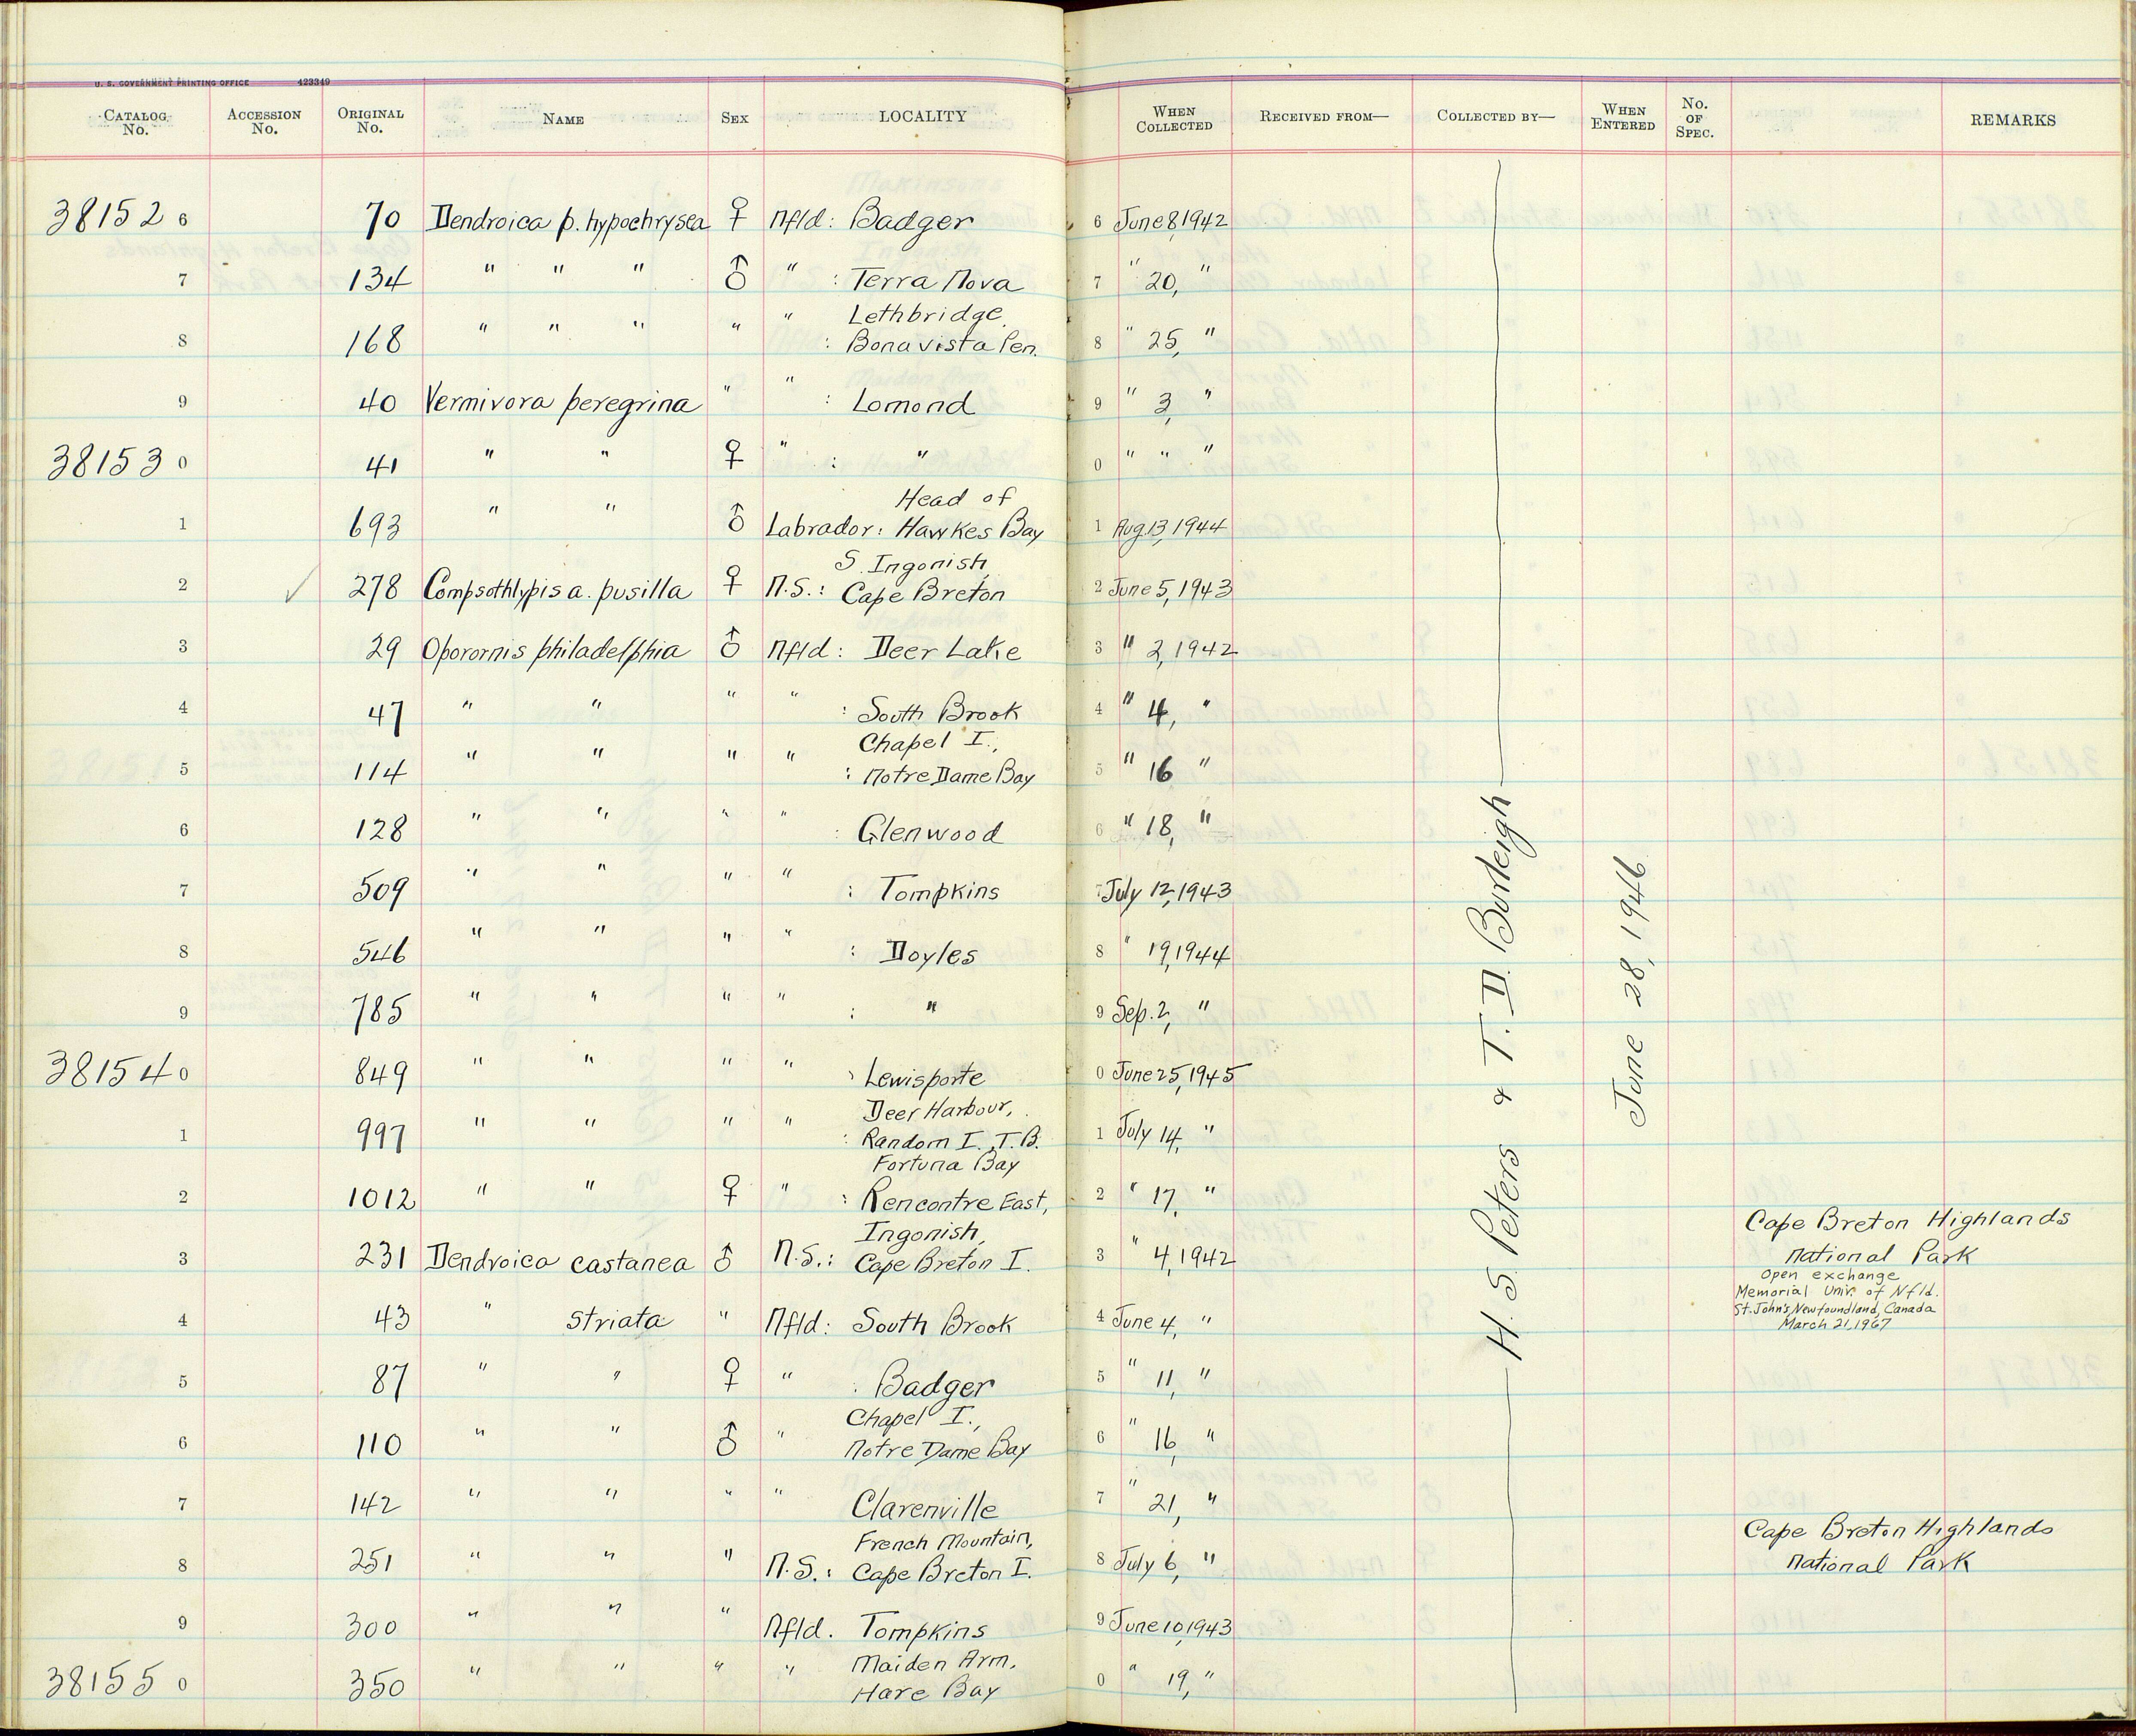 U. S. GOVERNMENT PRINTING OFFICE 423349
CATALOG No. ACCESSION No. ORIGINAL No. NAME SEX LOCALITY WHEN COLLECTED RECEIVED FROM— COLLECTED BY— WHEN ENTERED No. OF SPEC. REMARKS
38152 6 70 Dendroica p. hypochrysea ♀ Nfld: Badger 6 June 8, 1942
7 134 " " " ♂ " : Terra Nova 7 " 20, "
Lethbridge,
8 168 " " " " " : Bonavista Pen. 8 " 25, "
9 40 Vermivora peregrina " " : Lomond 9 " 3, "
38153 0 41 " " ♀ " : " 0 " " "
Head of
1 693 " " ♂ Labrador: Hawkes Bay 1 Aug. 13, 1944
S. Ingonish,
2 ✓ 278 Compsothlypis a. pusilla ♀ N.S.: Cape Breton 2 June 5, 1943
3 29 Oporornis philadelphia ♂ Nfld: Deer Lake 3 " 2, 1942
4 47 " " " " : South Brook 4 " 4, "
Chapel I.,
5 114 " " " " : Notre Dame Bay 5 " 16, "
6 128 " " " " : Glenwood 6 " 18, "
7 509 " " " " : Tompkins 7 July 12, 1943
8 546 " " " " : Doyles 8 " 19, 1944
9 785 " " " " : " 9 Sep. 2, "
38154 0 849 " " " " Lewisporte 0 June 25, 1945
Deer Harbour,
1 997 " " " " : Random I., T.B. 1 July 14, "
Fortuna Bay
2 1012 " " ♀ " : Rencontre East, 2 " 17, "
Ingonish,
3 231 Dendroica castanea ♂ N.S.: Cape Breton I. 3 " 4, 1942
Cape Breton Highlands
National Park
4 43 " striata " Nfld: South Brook 4 June 4, "
Open exchange
Memorial Univ. of Nfld.
St. John's, Newfoundland, Canada
March 21, 1967
5 87 " " ♀ " : Badger 5 " 11, "
Chapel I.,
6 110 " " ♂ " Notre Dame Bay 6 " 16, "
7 142 " " " " Clarenville 7 " 21, "
French Mountain,
8 251 " " " N.S.: Cape Breton I. 8 July 6, "
Cape Breton Highlands
National Park
9 300 " " " Nfld. Tompkins 9 June 10, 1943
Maiden Arm,
38155 0 350 " " " " Hare Bay 0 " 19, "
H. S. Peters & T. D. Burleigh
June 28, 1946